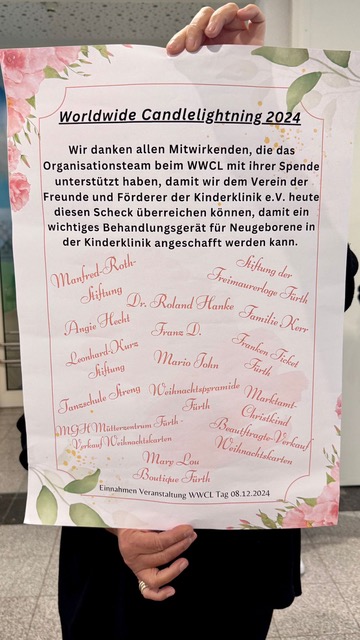 Worldwide Candlelightning 2024
Wir danken allen Mitwirkenden, die das
Organisationsteam beim WWCL mit ihrer Spende
unterstützt haben, damit wir dem Verein der
Freunde und Förderer der Kinderklinik e.V. heute
diesen Scheck überreichen können, damit ein
wichtiges Behandlungsgerät für Neugeborene in
der Kinderklinik angeschafft werden kann.
Manfred-Roth-
Stiftung
Stiftung der
Freimaurerloge Fürth
Dr. Roland Hanke
Angie Hecht
Franz D.
Familie Kerr
Leonhard-Kurz
Stiftung
Mario John
Franken Ticket
Fürth
Tanzschule Streng
Weihnachtspyramide
Fürth
Marktamt-
Christkind
MGH Mütterzentrum Fürth -
Verkauf Weihnachtskarten
Beauftragte-Verkauf
Weihnachtskarten
Mary Lou
Boutique Fürth
Einnahmen Veranstaltung WWCL Tag 08.12.2024